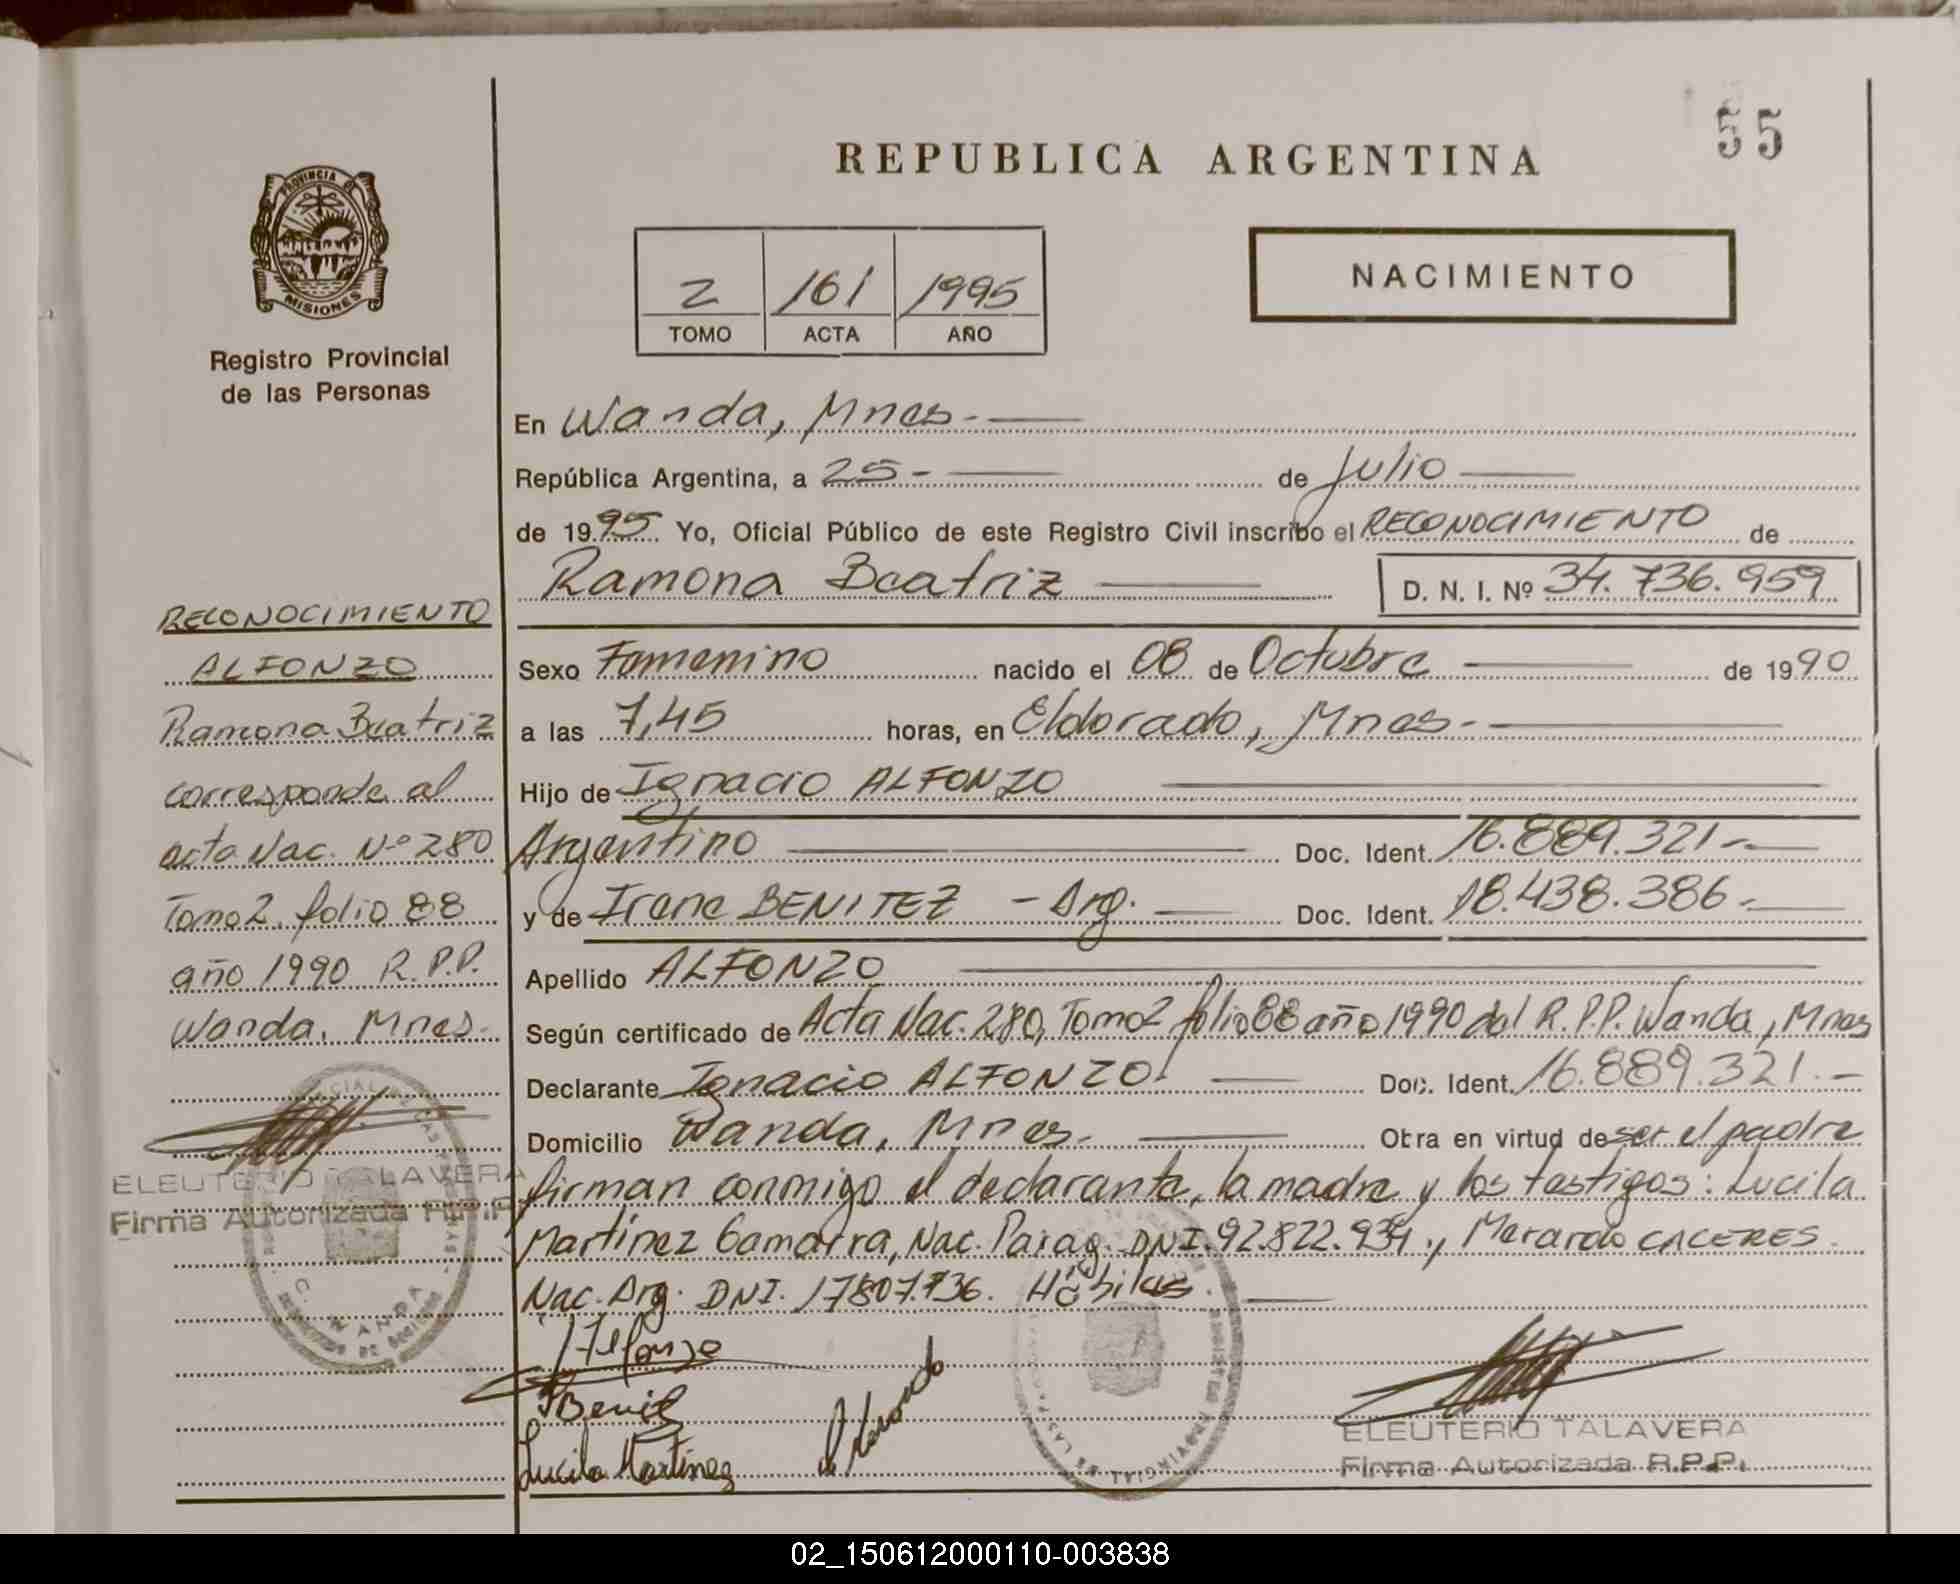 55
REPUBLICA ARGENTINA
PROVINCIA DE
MISIONES
Registro Provincial
de las Personas
2 161 1995
TOMO ACTA AÑO
NACIMIENTO
En Wanda, Mnes.
República Argentina, a 25 - de Julio
de 1995 Yo, Oficial Público de este Registro Civil inscribo el RECONOCIMIENTO de
Ramona Beatriz D. N. I. Nº 34.736.959
Sexo Femenino nacido el 08 de Octubre de 1990
a las 7,45 horas, en Eldorado, Mnes.
Hijo de Ignacio ALFONZO
Argentino Doc. Ident. 16.889.321.-
y de Irene BENITEZ - Arg. Doc. Ident. 18.438.386.
Apellido ALFONZO
Según certificado de Acta Nac. 280, Tomo 2 folio 88 año 1990 del R.P.P. Wanda, Mnes
Declarante Ignacio ALFONZO. Doc. Ident. 16.889.321.-
Domicilio Wanda, Mnes. Otra en virtud de ser el padre
firman conmigo el declarante, la madre y los testigos: Lucila
Martínez Gamarra, Nac. Parag. DNI. 92.822.934., Merardo CACERES.
Nac. Arg. DNI. 17807.736. Hábiles.
RECONOCIMIENTO
ALFONZO
Ramona Beatriz
corresponde al
acta Nac. Nº 280
Tomo 2, folio 88
año 1990 R.P.P.
Wanda, Mnes.
ELEUTERIO TALAVERA
Firma Autorizada R.P.P.
WANDA
Alfonzo
Lucila Martínez
ELEUTERIO TALAVERA
Firma Autorizada R.P.P.
02_150612000110-003838